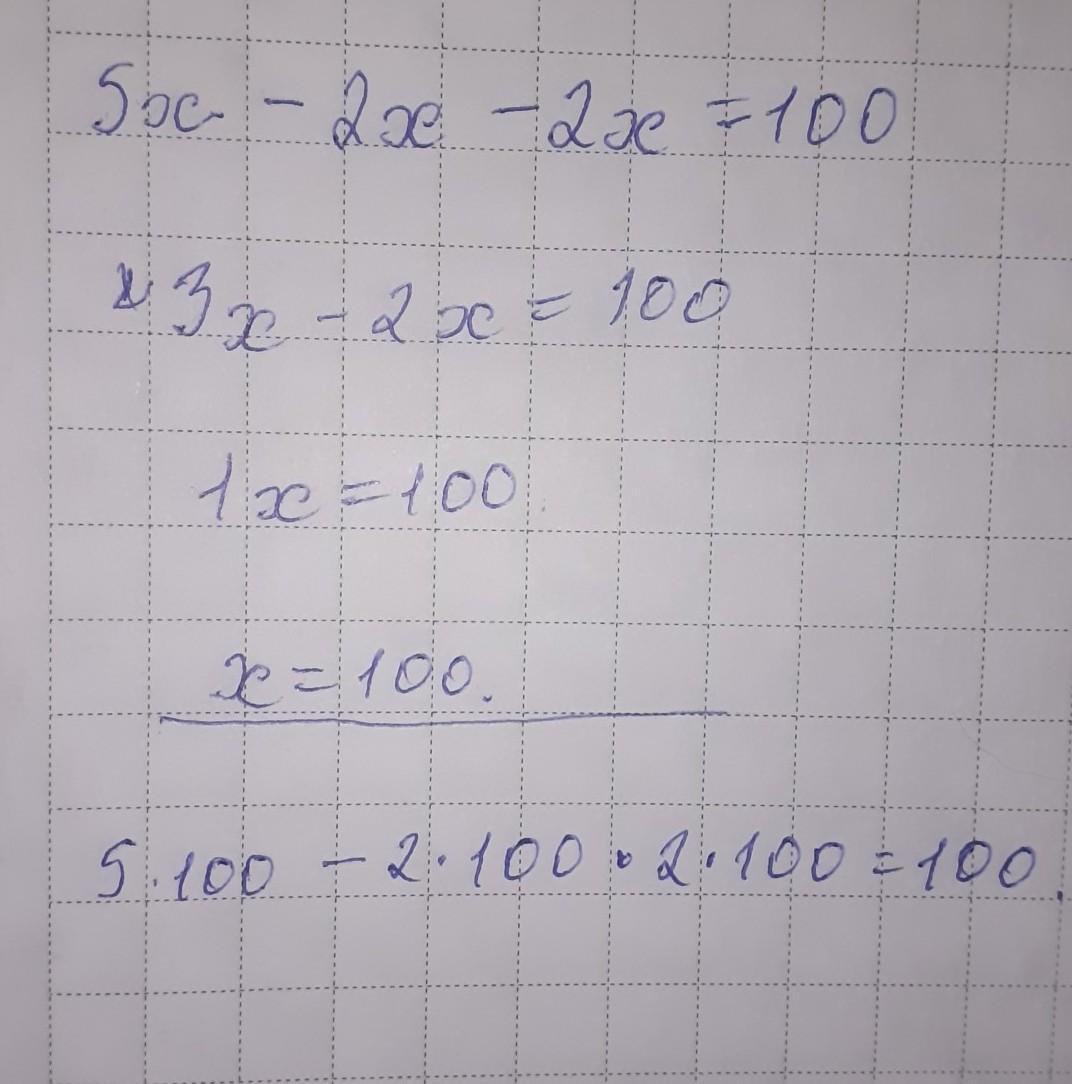 5x - 2x - 2x = 100
3x - 2x = 100
1x = 100
x = 100.
5 · 100 - 2 · 100 · 2 · 100 = 100.